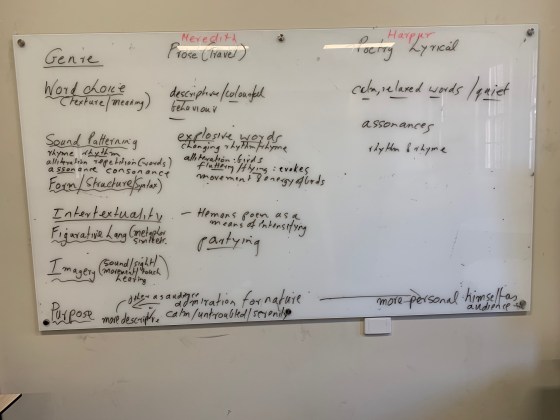 Meredith Harpur
Genre Prose (travel) Poetry Lyrical
Word choice descriptive/colourful calm, relaxed words / quiet
(texture/meaning) behaviour
assonances
Sound Patterning explosive words
rhyme rhythm changing rhythm/rhyme rhythm & rhyme
alliteration repetition (words) alliteration: birds
assonance consonance fluttering/flying: evokes
Form/Structure (syntax) movement & energy of birds
Intertextuality – Hemans poem as a
means of intensifying
Figurative Lang (metaphor
similes
partying
Imagery (sound/sight/
movement/touch
hearing
as audience admiration for nature more personal himself as
audience
Purpose more descriptive calm/untroubled/serenity